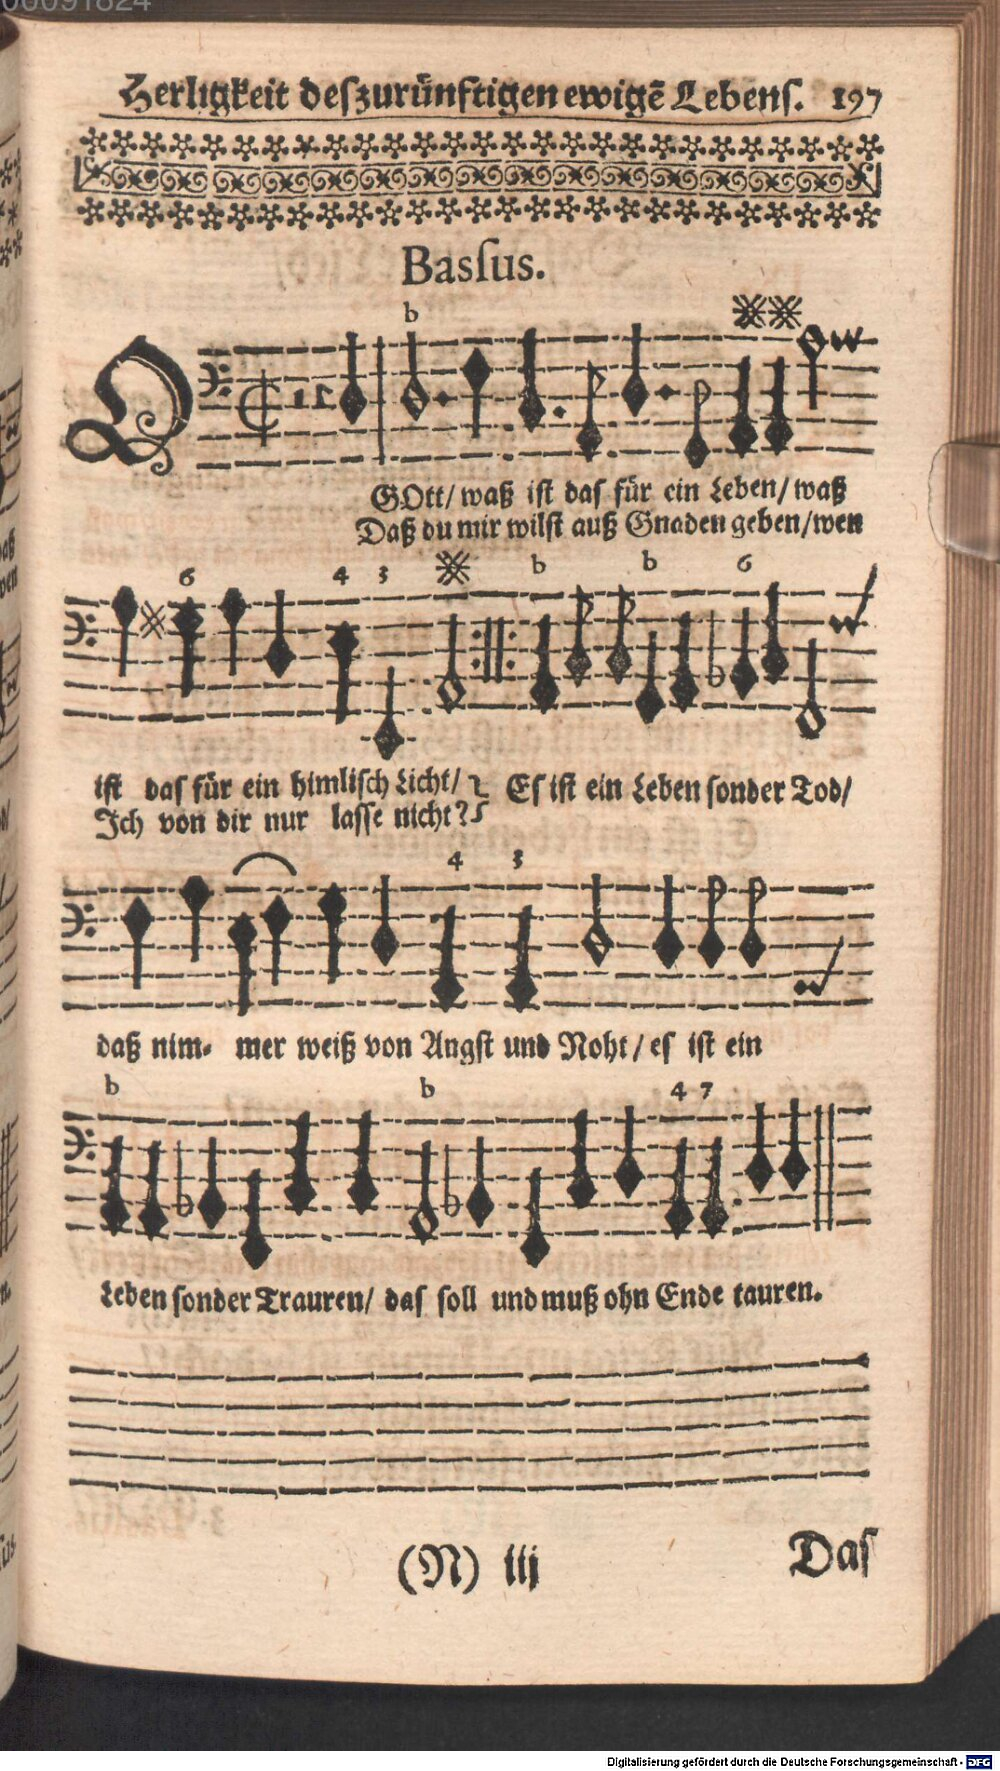 00091824
Herligkeit deſ zukünftigen ewigē Lebenſ. 197
Baſſus.
b
O
GOtt/ waß iſt das für ein Leben/ waß
Daß du mir wilſt auß Gnaden geben/ wen
6 4 3 b b 6
iſt das für ein himliſch Licht/ Eſ iſt ein Leben ſonder Tod/
Ich von dir nur laſſe nicht?
4 3
daß nim- mer weiß von Angſt und Noht/ es iſt ein
b b 4 7
Leben ſonder Trauren/ das ſoll und muß ohn Ende tauren.
(N) iij
Das
Digitalisierung gefördert durch die Deutsche Forschungsgemeinschaft - DFG